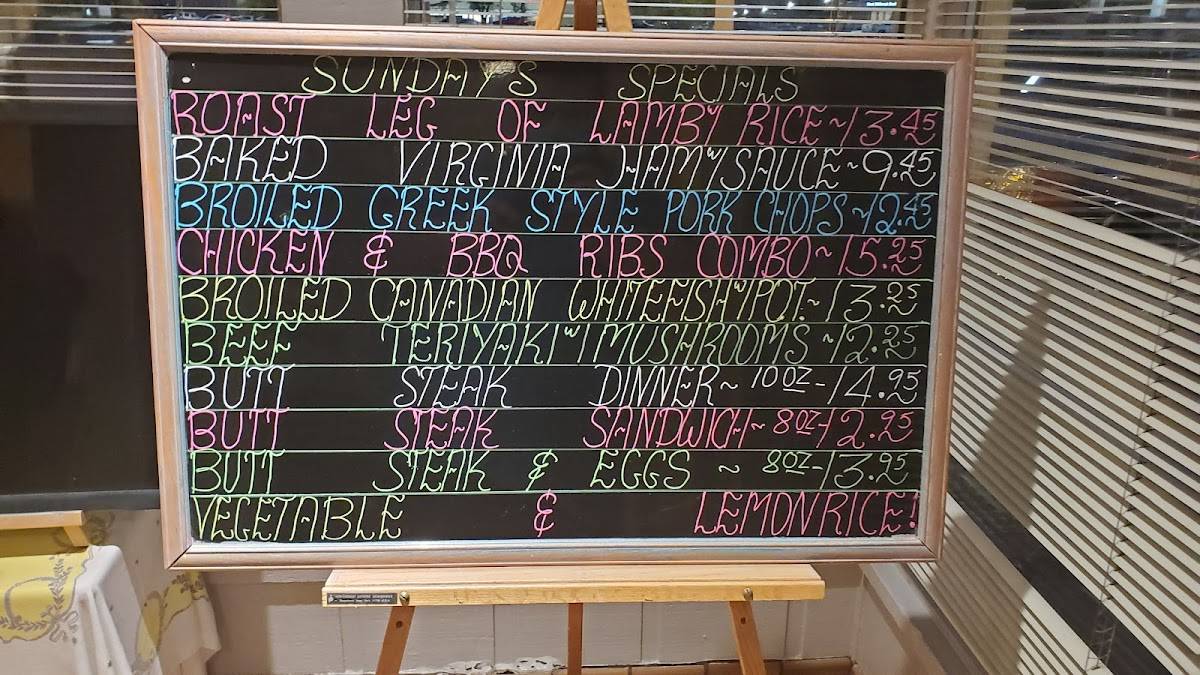 SUNDAY'S SPECIALS
ROAST LEG OF LAMB W/ RICE ~ 13.45
BAKED VIRGINIA HAM W/ SAUCE ~ 9.45
BROILED GREEK STYLE PORK CHOPS ~ 12.45
CHICKEN & BBQ RIBS COMBO ~ 15.25
BROILED CANADIAN WHITEFISH W/ POT. ~ 13.25
BEEF TERIYAKI W/ MUSHROOMS ~ 12.25
BUTT STEAK DINNER ~ 10 OZ - 14.95
BUTT STEAK SANDWICH ~ 8 OZ - 12.95
BUTT STEAK & EGGS ~ 8 OZ - 13.95
VEGETABLE & LEMON RICE!